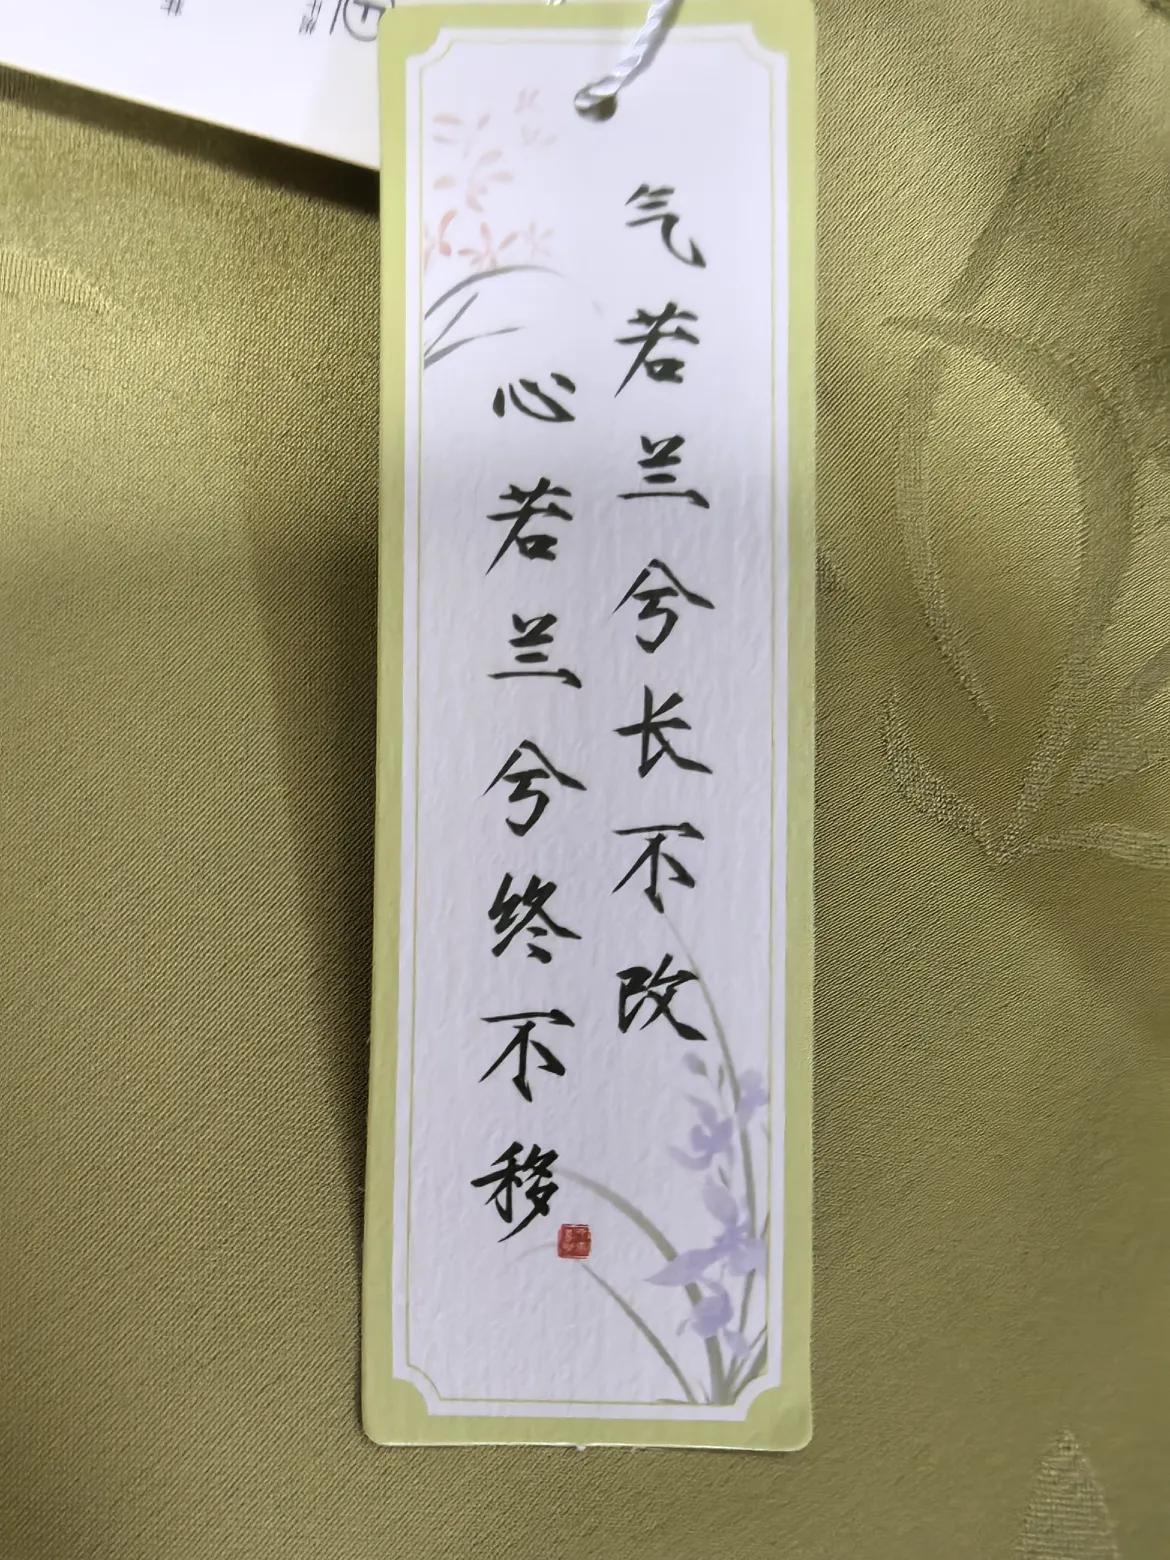 气若兰兮长不改
心若兰兮终不移